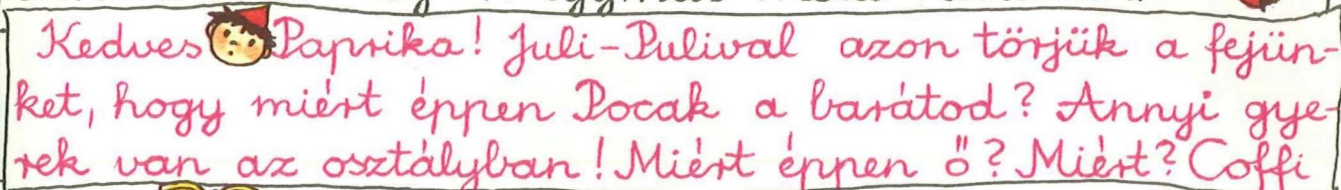 Kedves Paprika! Juli-Pulival azon törjük a fejün-
ket, hogy miért éppen Pocak a barátod? Annyi gye-
rek van az osztályban! Miért éppen ő? Miért? Coffi